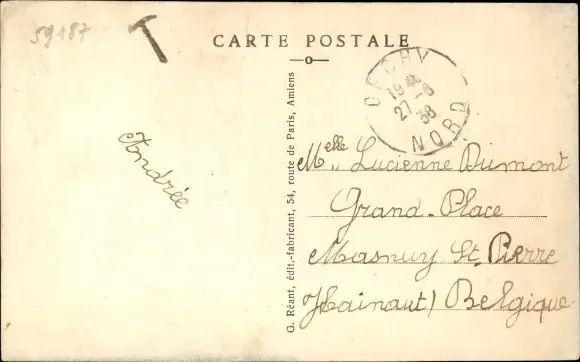 59187
T
CARTE POSTALE
OECHY
19 45
27-8
38
NORD
Andrée
G. Réant, édit.-fabricant, 54, route de Paris, Amiens
Melle Lucienne Dumont
Grand-Place
Masnuy St. Pierre
(Hainaut) Belgique